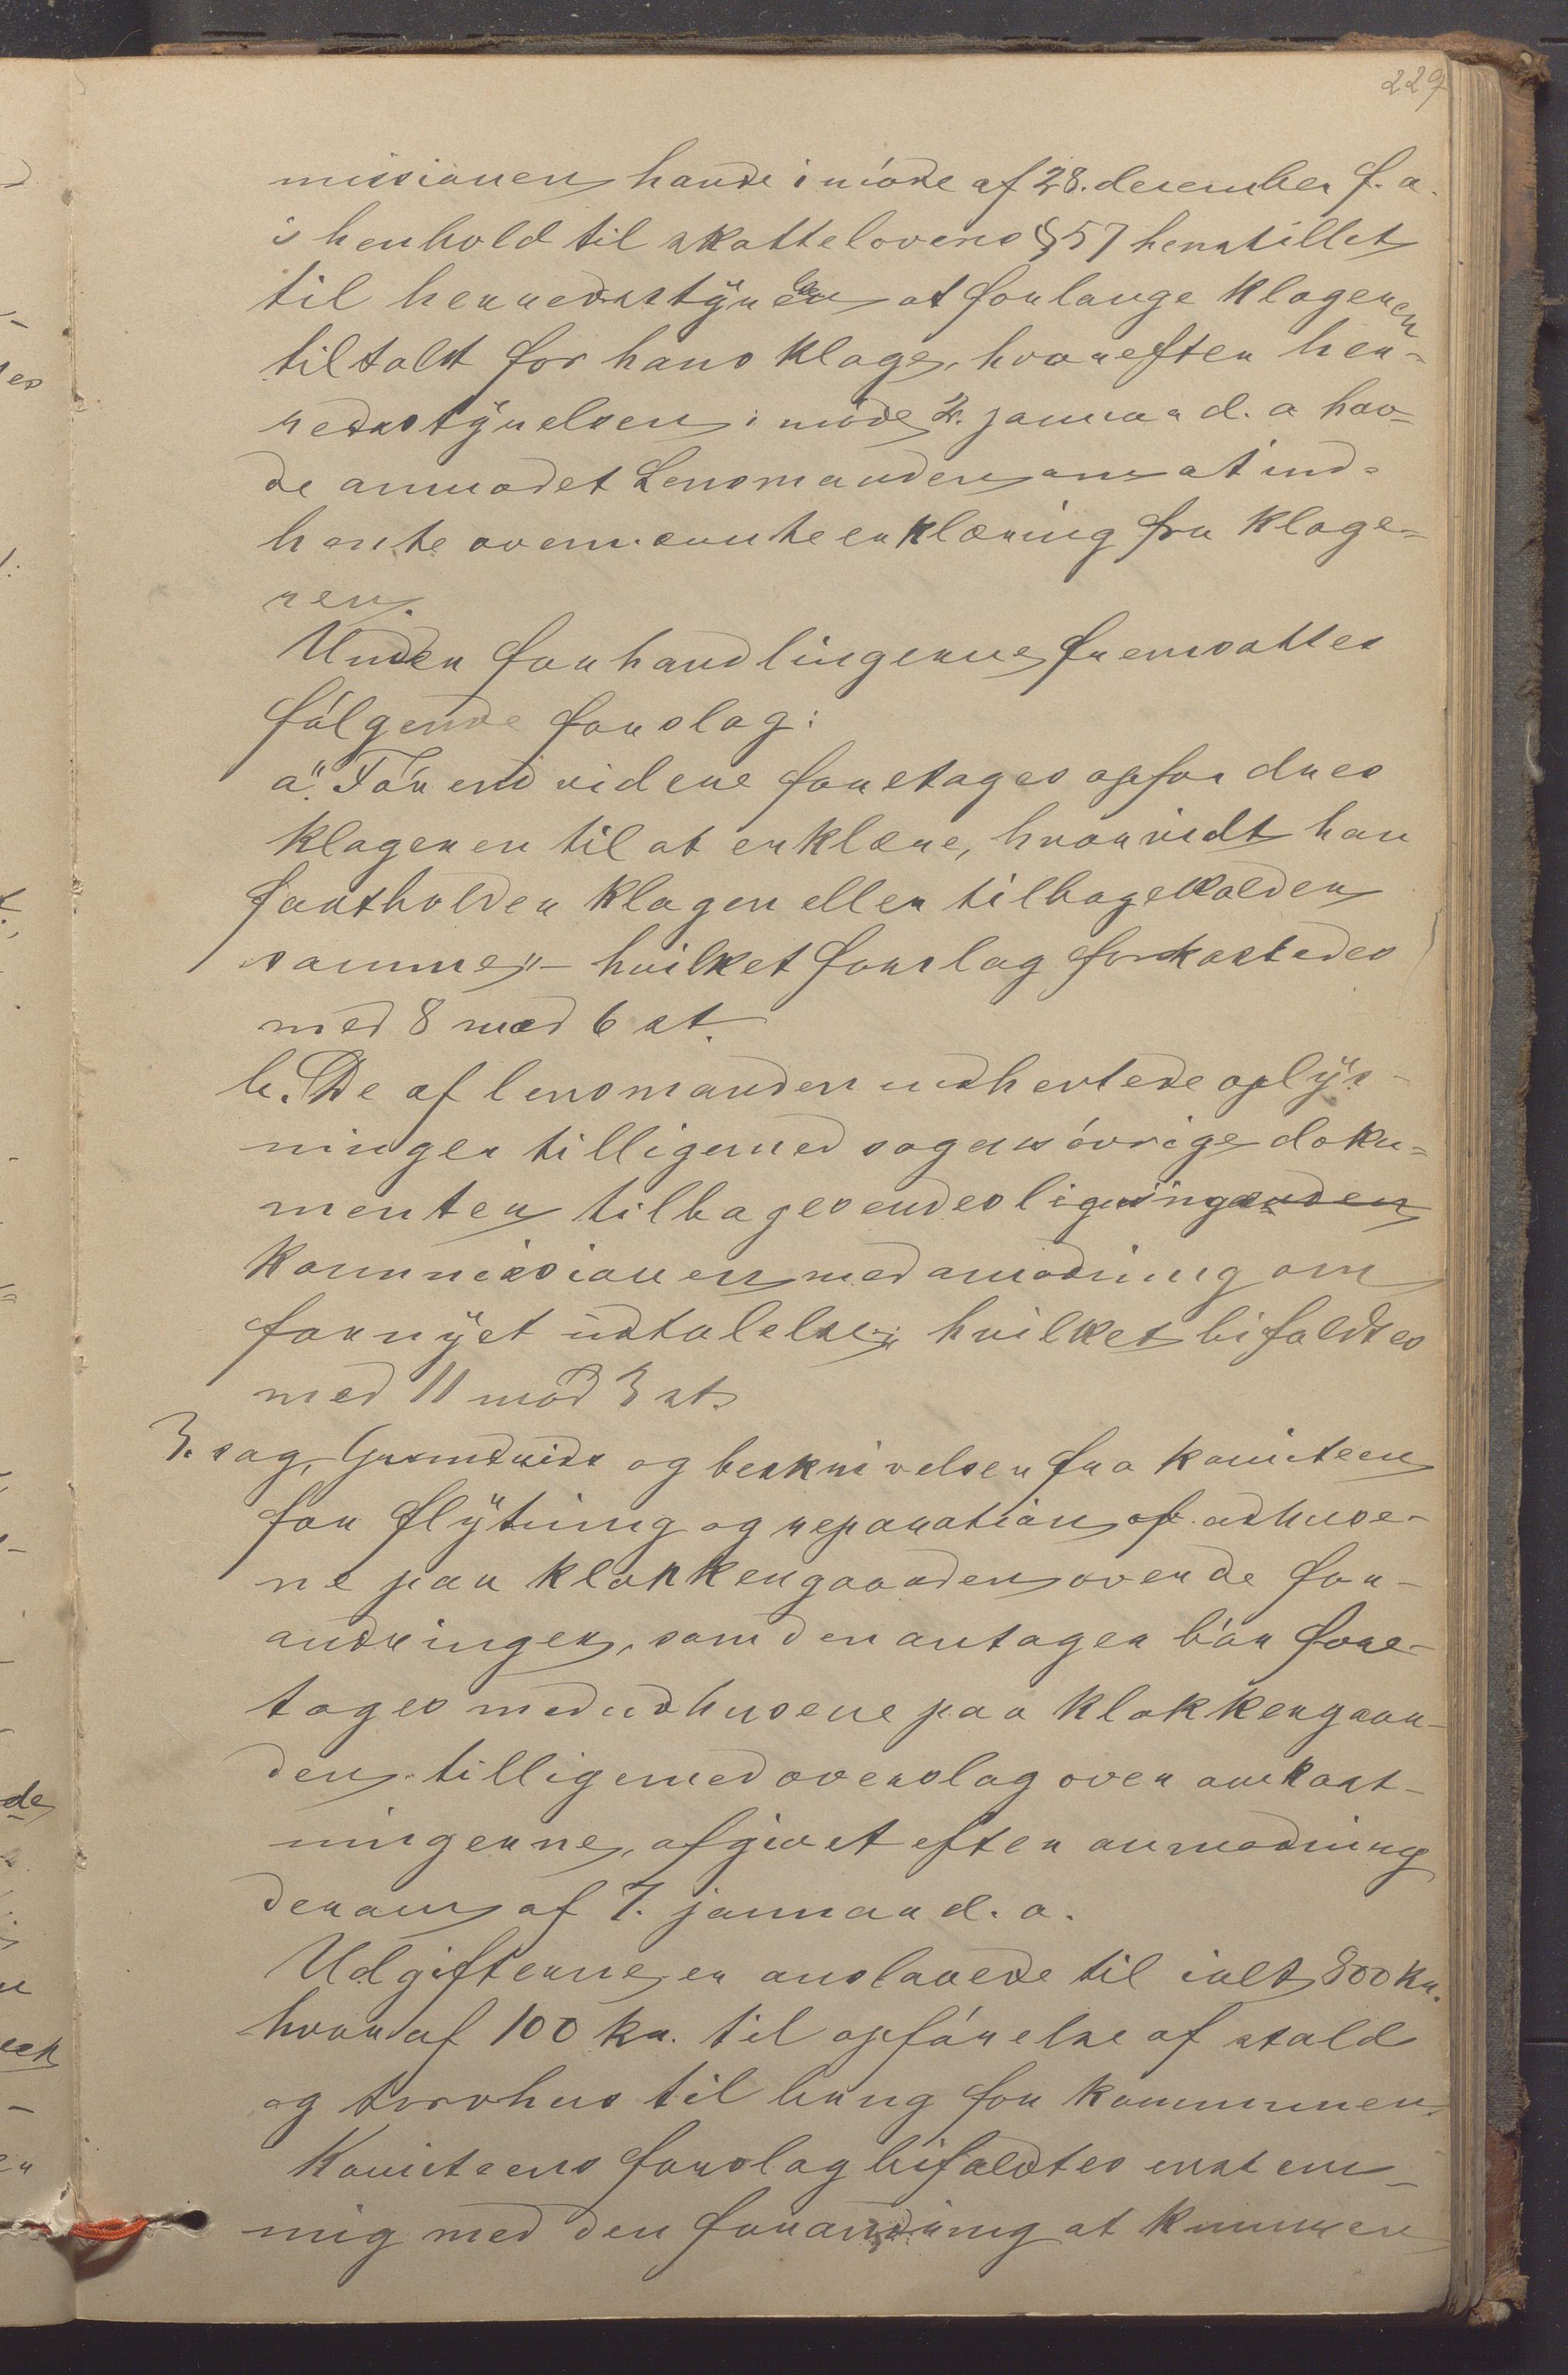 229
missionen havde i møde af 28. desember f. a.
i henhold til skattelovens § 57 henstillet
til herredsstyrelsen at forlange klageren
tiltalt for hans klage, hvorefter her-
redsstyrelsen i møde 2. januar d. a hav-
de anmodet Lensmanden om at ind-
hente ovennævnte erklæring fra klage-
ren.
Under forhandlingerne fremsattes
følgende forslag:
a. "Før end videre foretages opfordres
klageren til at erklære, hvorvidt han
fastholder klagen eller tilbagekalder
samme" - hvilket forslag forkastedes
med 8 mod 6 st.
b. De af lensmanden indhentede oplys-
ninger tilligemed sagens øvrige doku-
menter tilbagesendes lignings
kommissionen med anmodning om
fornyet udtalelse; hvilket bifaldtes
med 11 mod 3 st.
3. sag, Grundrids og beskrivelser fra komiteen
for flytning og reparation af udhuse-
ne paa klokkergaarden over de for-
andringer, som den antager bør fore-
tages med udhusene paa klokkergaar-
den tilligemed overslag over omkost-
ningerne, afgivet efter anmodning
derom af 7. januar d. a.
Udgifterne er anslaaede til ialt 800 kr.
hvoraf 100 kr. til opførelse af stald
og torvhus til brug for kommunen.
Komiteens forslag bifaldtes enstem-
mig med den forandring at kummen